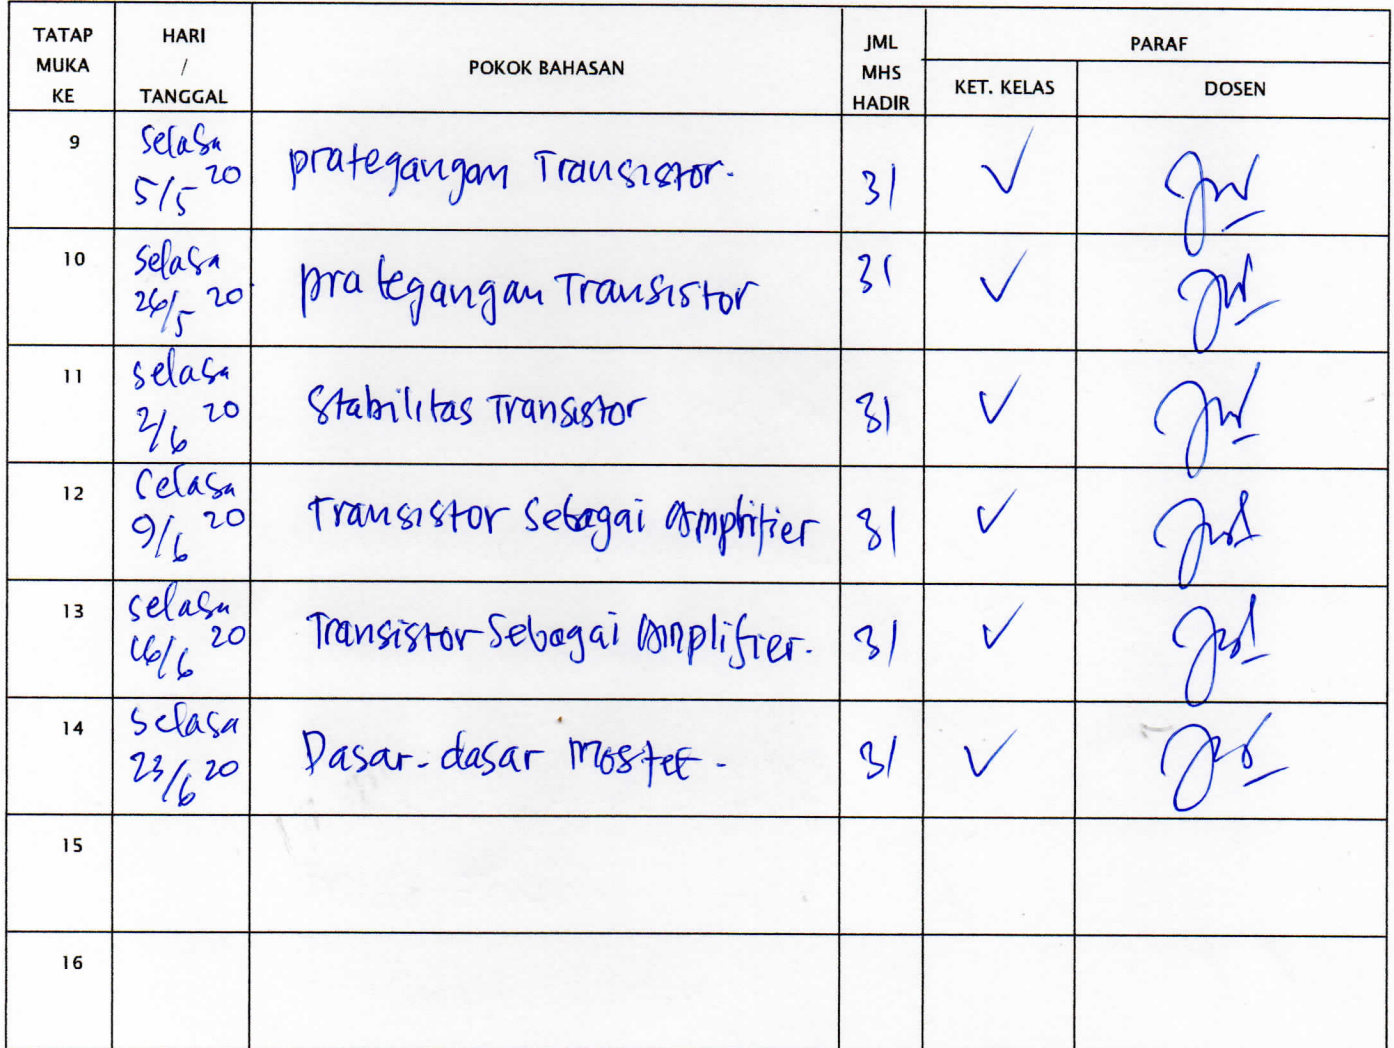 TATAP MUKA KE HARI / TANGGAL POKOK BAHASAN JML MHS HADIR PARAF
KET. KELAS DOSEN
9 Selasa 5/5 20 prategangan Transistor. 31 ✓
10 Selasa 26/5 20 prategangan Transistor 31 ✓
11 Selasa 2/6 20 Stabilitas Transistor 31 ✓
12 Selasa 9/6 20 Transistor Sebagai Amplifier 31 ✓
13 Selasa 16/6 20 Transistor Sebagai Amplifier. 31 ✓
14 Selasa 23/6 20 Dasar-dasar Mosfet. 31 ✓
15
16